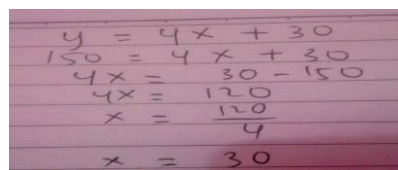 y = 4x + 30
150 = 4x + 30
4x = 30 - 150
4x = 120
x = 120/4
x = 30